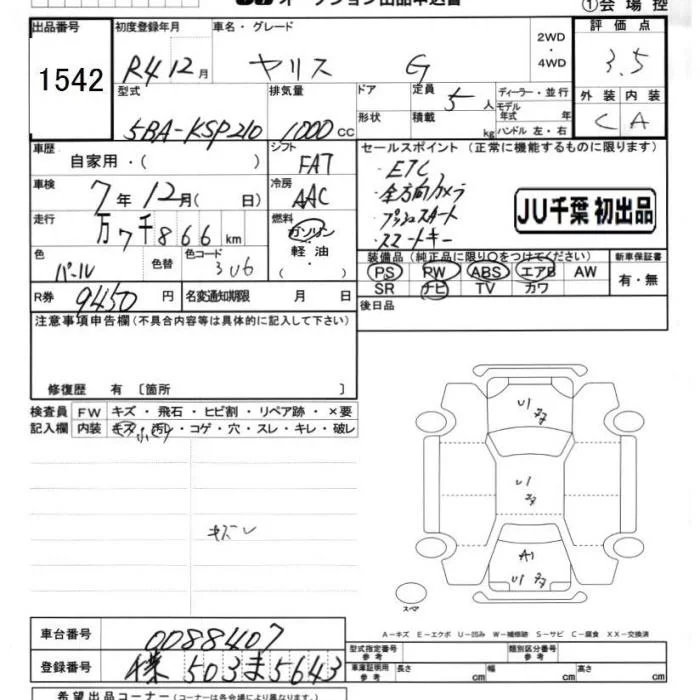 オークション出品申込書
①会場控
出品番号 初度登録年月 車名・グレード 2WD ・ 4WD 評価点
1542 R4 12月 ヤリス G 3.5
型式 排気量 ドア 定員 5人 ディーラー・並行 外装 内装
5BA-KSP210 1000cc 形状 積載 kg モデル年式 年 ハンドル 左・右 C A
車歴 自家用・( ) シフト FAT セールスポイント (正常に機能するものに限ります)
車検 7年12月( 日) 冷房 AAC ・ETC
・全方向カメラ
・プッシュスタート
・スマートキー
JU千葉 初出品
走行 万7千866km 燃料 ガソリン・軽油
色 パール 色替 色コード 3U6
装備品 (純正品に限り〇をつけてください) 新車保証書
PS PW ABS エアB AW 有・無
SR ナビ TV カワ
R券 9450円 名変通知期限 月 日 後日品
注意事項申告欄 (不具合内容等は具体的に記入して下さい)
修復歴 有 [箇所 ]
検査員 FW キズ・飛石・ヒビ割・リペア跡・×要
記入欄 内装 キズ・汚レ・コゲ・穴・スレ・キレ・破レ
U1
U1
A1
U1
スペア
A-キズ E-エクボ U-凹み W-補修跡 S-サビ C-腐食 XX-交換済
車台番号 0088407
登録番号 503 ま 5643
型式指定番号 参考 類別区分番号 参考
車庫証明用 参考 長さ cm 幅 cm 高さ cm
希望出品コーナー (コーナーは各会場により異なります。)